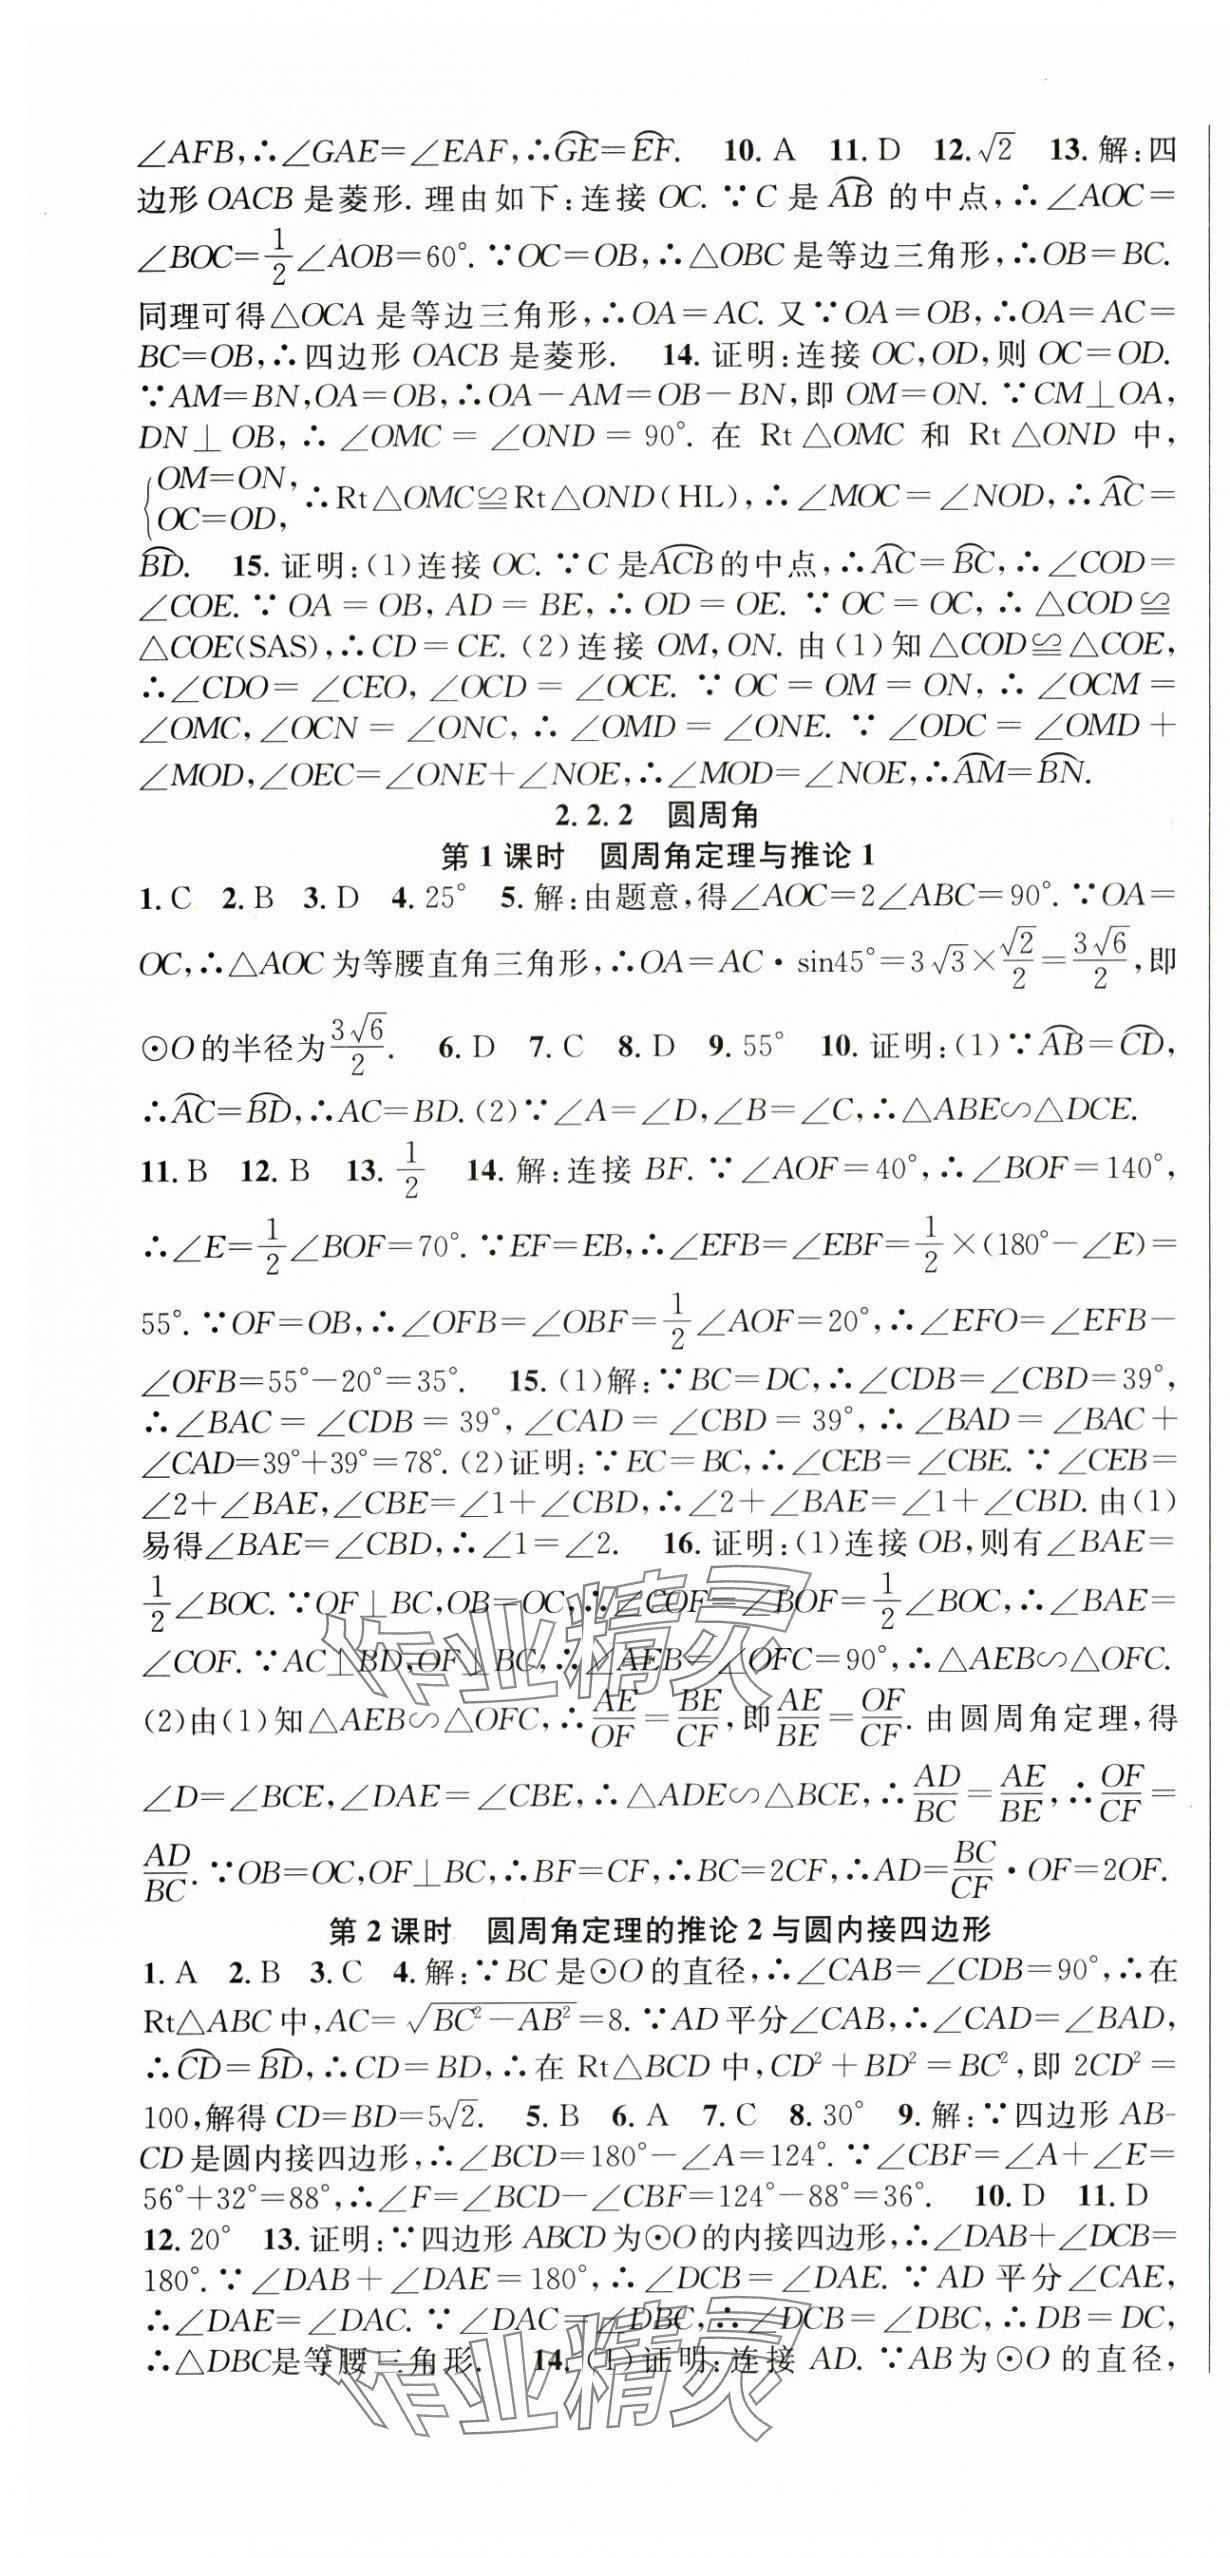 ∠AFB,∴∠GAE=∠EAF,∴G͡E=E͡F. 10. A 11. D 12. √2 13. 解:四
边形 OACB 是菱形. 理由如下:连接 OC. ∵C 是 A͡B 的中点,∴∠AOC=
∠BOC=1/2∠AOB=60°. ∵OC=OB,∴△OBC 是等边三角形,∴OB=BC.
同理可得△OCA 是等边三角形,∴OA=AC. 又∵OA=OB,∴OA=AC=
BC=OB,∴四边形 OACB 是菱形. 14. 证明:连接 OC,OD,则 OC=OD.
∵AM=BN,OA=OB,∴OA-AM=OB-BN,即 OM=ON. ∵CM⊥OA,
DN⊥OB,∴∠OMC=∠OND=90°. 在 Rt△OMC 和 Rt△OND 中,
{OM=ON,
OC=OD, ∴Rt△OMC≌Rt△OND(HL),∴∠MOC=∠NOD,∴A͡C=
B͡D. 15. 证明:(1)连接 OC. ∵C 是A͡C͡B的中点,∴A͡C=B͡C,∴∠COD=
∠COE. ∵OA=OB,AD=BE,∴OD=OE. ∵OC=OC,∴△COD≌
△COE(SAS),∴CD=CE. (2)连接 OM,ON. 由(1)知△COD≌△COE,
∴∠CDO=∠CEO,∠OCD=∠OCE. ∵OC=OM=ON,∴∠OCM=
∠OMC,∠OCN=∠ONC,∴∠OMD=∠ONE. ∵∠ODC=∠OMD+
∠MOD,∠OEC=∠ONE+∠NOE,∴∠MOD=∠NOE,∴A͡M=B͡N.
2.2.2 圆周角
第 1 课时 圆周角定理与推论 1
1. C 2. B 3. D 4. 25° 5. 解:由题意,得∠AOC=2∠ABC=90°. ∵OA=
OC,∴△AOC 为等腰直角三角形,∴OA=AC·sin45°=3√3×√2/2=3√6/2,即
⊙O 的半径为3√6/2. 6. D 7. C 8. D 9. 55° 10. 证明:(1)∵A͡B=C͡D,
∴A͡C=B͡D,∴AC=BD. (2)∵∠A=∠D,∠B=∠C,∴△ABE∽△DCE.
11. B 12. B 13. 1/2 14. 解:连接 BF. ∵∠AOF=40°,∴∠BOF=140°,
∴∠E=1/2∠BOF=70°. ∵EF=EB,∴∠EFB=∠EBF=1/2×(180°-∠E)=
55°. ∵OF=OB,∴∠OFB=∠OBF=1/2∠AOF=20°,∴∠EFO=∠EFB-
∠OFB=55°-20°=35°. 15. (1)解:∵BC=DC,∴∠CDB=∠CBD=39°,
∴∠BAC=∠CDB=39°,∠CAD=∠CBD=39°,∴∠BAD=∠BAC+
∠CAD=39°+39°=78°. (2)证明:∵EC=BC,∴∠CEB=∠CBE. ∵∠CEB=
∠2+∠BAE,∠CBE=∠1+∠CBD,∴∠2+∠BAE=∠1+∠CBD. 由(1)
易得∠BAE=∠CBD,∴∠1=∠2. 16. 证明:(1)连接 OB,则有∠BAE=
1/2∠BOC. ∵OF⊥BC,OB=OC,∴∠COF=∠BOF=1/2∠BOC,∴∠BAE=
∠COF. ∵AC⊥BD,OF⊥BC,∴∠AEB=∠OFC=90°,∴△AEB∽△OFC.
(2)由(1)知△AEB∽△OFC,∴AE/OF=BE/CF,即AE/BE=OF/CF. 由圆周角定理,得
∠D=∠BCE,∠DAE=∠CBE,∴△ADE∽△BCE,∴AD/BC=AE/BE,∴OF/CF=
AD/BC. ∵OB=OC,OF⊥BC,∴BF=CF,∴BC=2CF,∴AD=BC/CF·OF=2OF.
第 2 课时 圆周角定理的推论 2 与圆内接四边形
1. A 2. B 3. C 4. 解:∵BC 是⊙O 的直径,∴∠CAB=∠CDB=90°,∴在
Rt△ABC 中,AC=√(BC²-AB²)=8. ∵AD 平分∠CAB,∴∠CAD=∠BAD,
∴C͡D=B͡D,∴CD=BD,∴在 Rt△BCD 中,CD²+BD²=BC²,即 2CD²=
100,解得 CD=BD=5√2. 5. B 6. A 7. C 8. 30° 9. 解:∵四边形 AB-
CD 是圆内接四边形,∴∠BCD=180°-∠A=124°. ∵∠CBF=∠A+∠E=
56°+32°=88°,∴∠F=∠BCD-∠CBF=124°-88°=36°. 10. D 11. D
12. 20° 13. 证明:∵四边形 ABCD 为⊙O 的内接四边形,∴∠DAB+∠DCB=
180°. ∵∠DAB+∠DAE=180°,∴∠DCB=∠DAE. ∵AD 平分∠CAE,
∴∠DAE=∠DAC. ∵∠DAC=∠DBC,∴∠DCB=∠DBC,∴DB=DC,
∴△DBC是等腰三角形. 14. (1)证明:连接 AD. ∵AB 为⊙O 的直径,
作业精灵
作业精灵